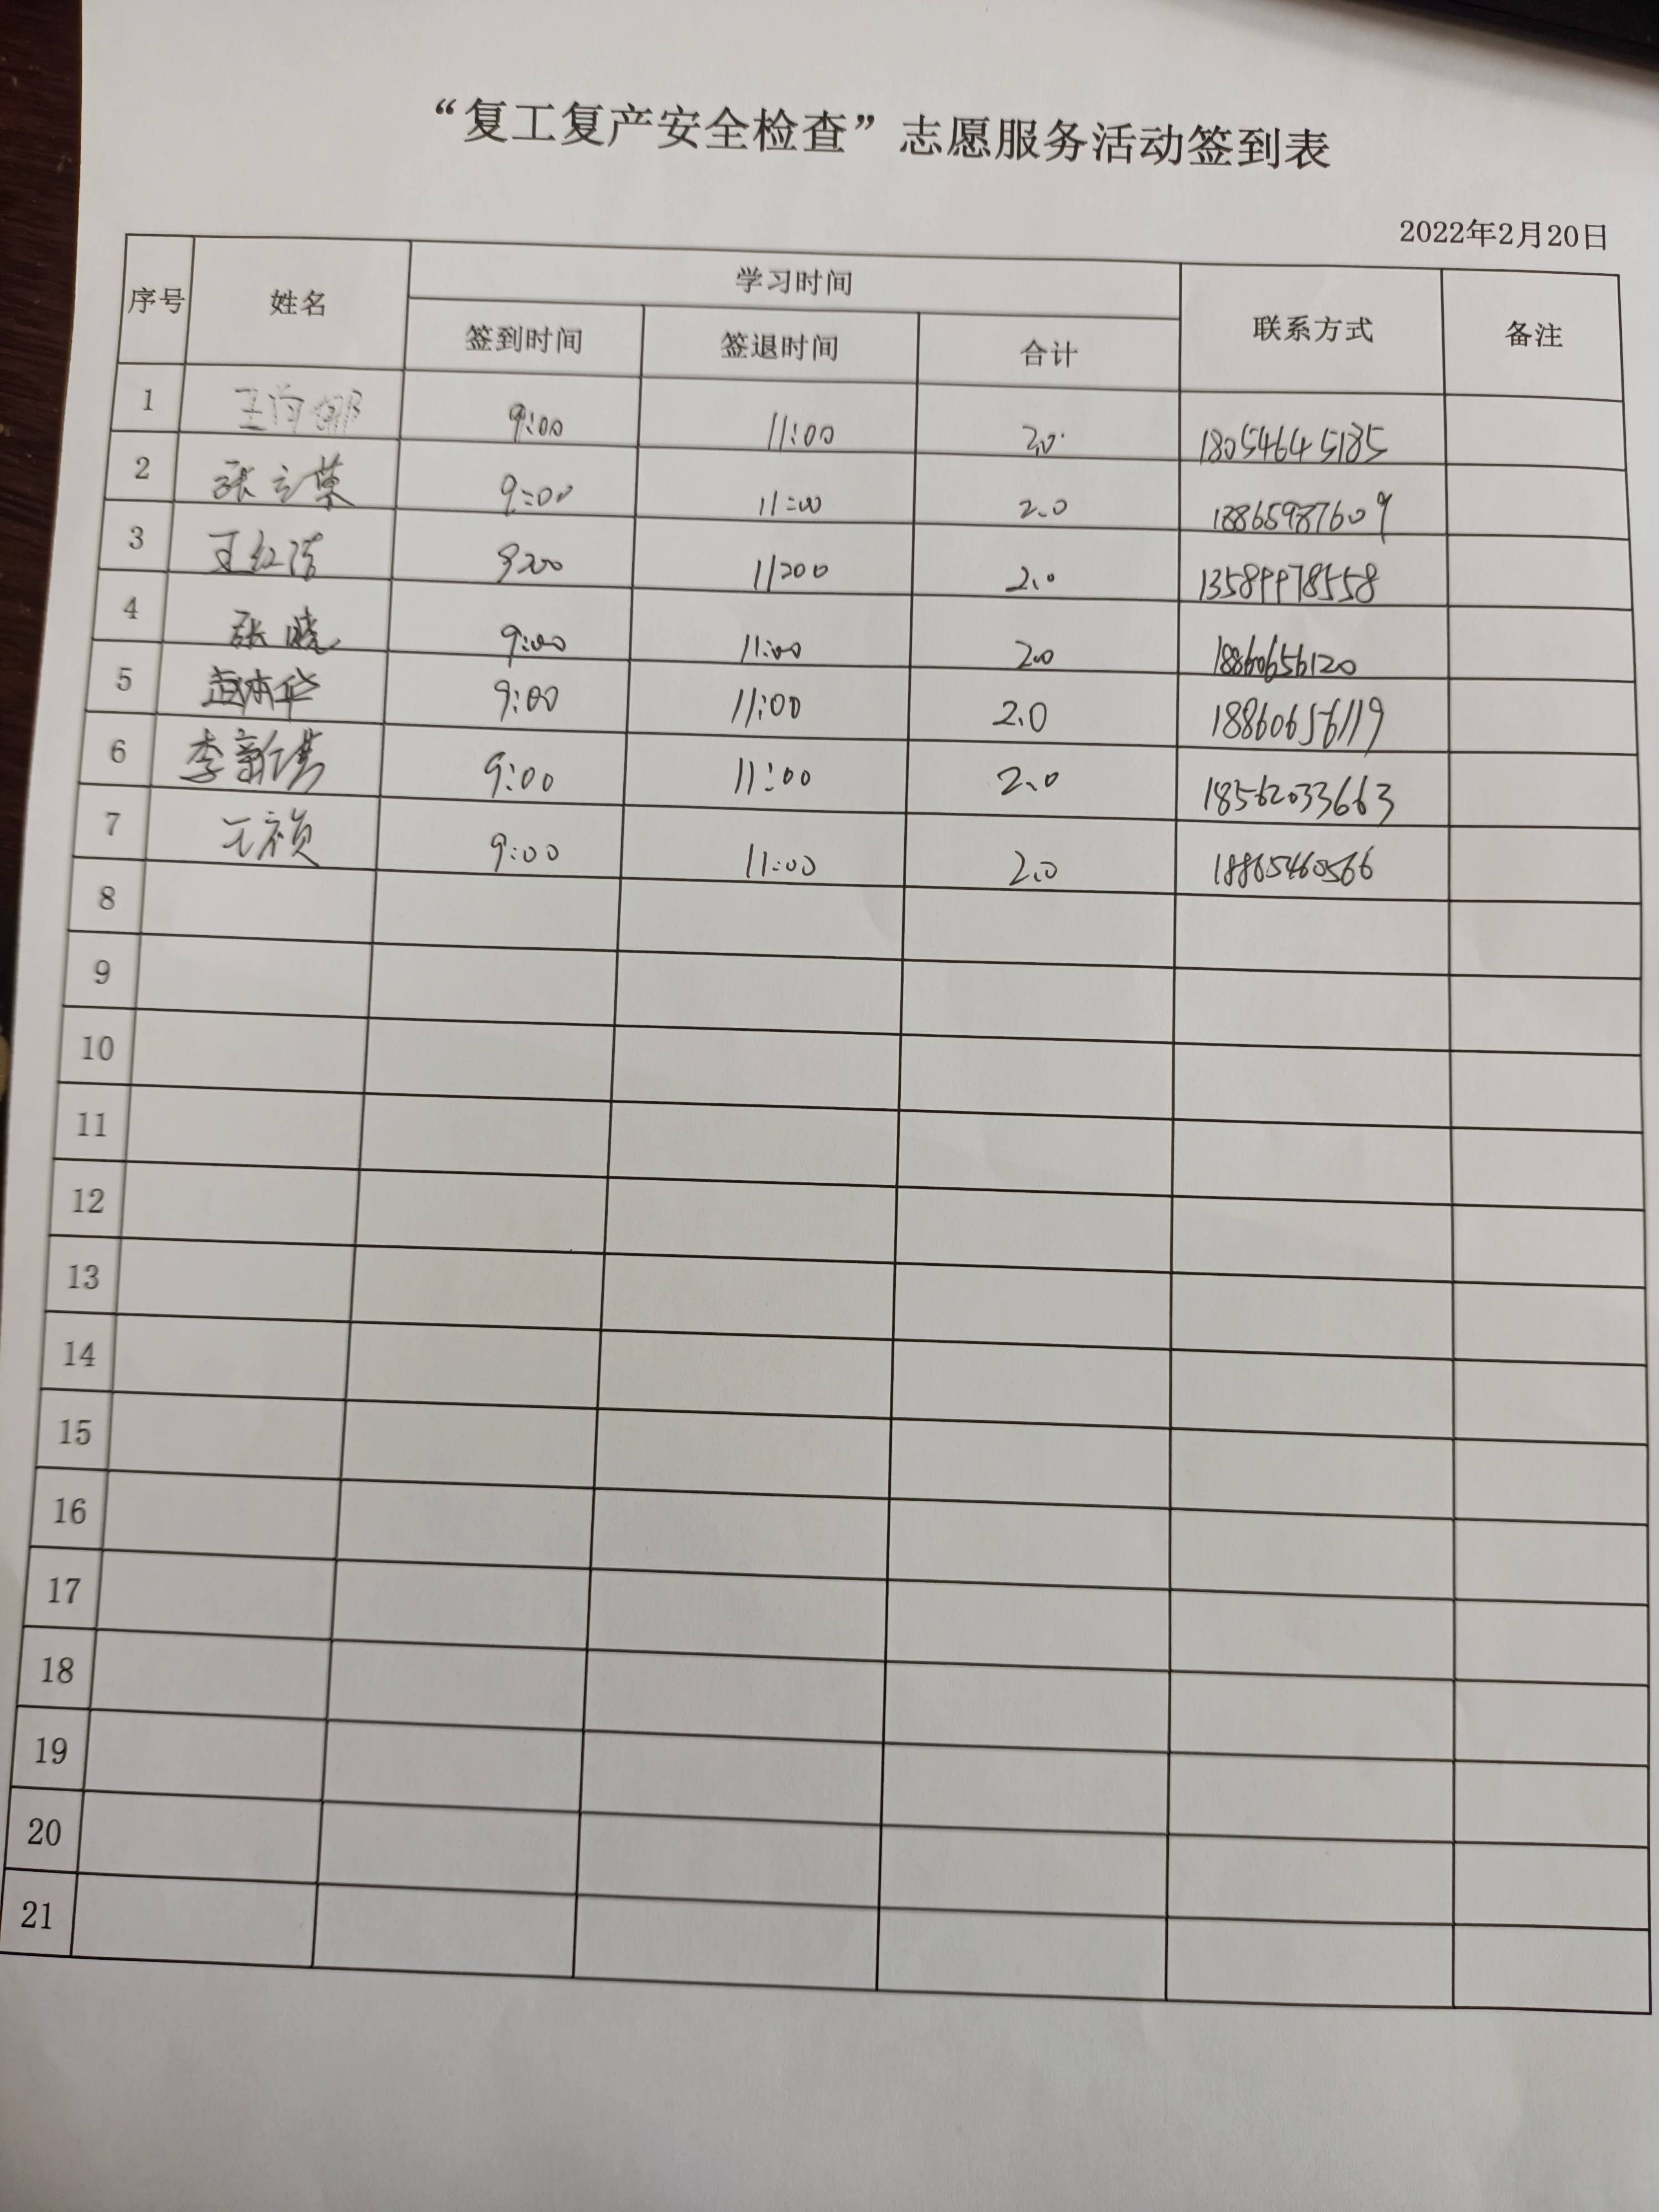 “复工复产安全检查”志愿服务活动签到表
2022年2月20日
序号 姓名 学习时间 联系方式 备注
签到时间 签退时间 合计
1 9:00 11:00 2.0 18054645185
2 张立 9:00 11:00 2.0 18865987609
3 王红 9:00 11:00 2.0 13589978558
4 张晓 9:00 11:00 2.0 18860656120
5 赵本华 9:00 11:00 2.0 18860656119
6 李新 9:00 11:00 2.0 18562033663
7 9:00 11:00 2.0 18865460566
8
9
10
11
12
13
14
15
16
17
18
19
20
21